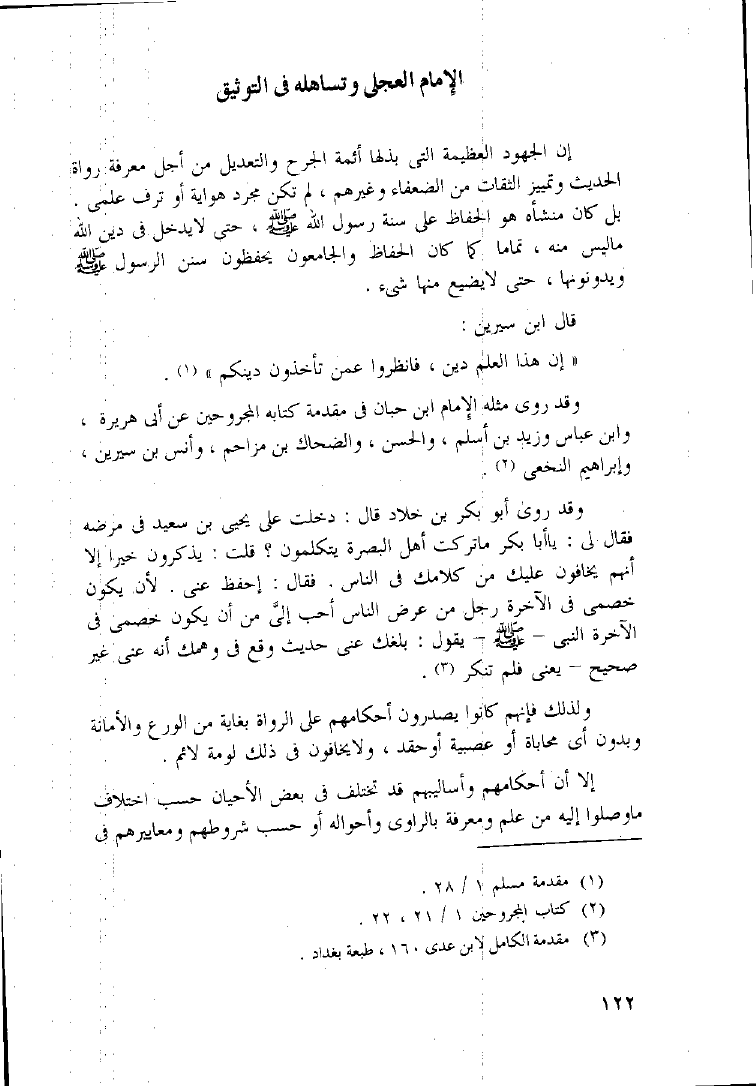 الإمام العجلى وتساهله فى التوثيق
إن الجهود العظيمة التى بذلها أئمة الجرح والتعديل من أجل معرفة رواة
الحديث وتمييز الثقات من الضعفاء وغيرهم ، لم تكن مجرد هواية أو ترف علمى .
بل كان منشأه هو الحفاظ على سنة رسول الله ﷺ ، حتى لايدخل فى دين الله
ماليس منه ، تماما كما كان الحفاظ والجامعون يحفظون سنن الرسول ﷺ
ويدونونها ، حتى لايضيع منها شىء .
قال ابن سيرين :
« إن هذا العلم دين ، فانظروا عمن تأخذون دينكم » (١) .
وقد روى مثله الإمام ابن حبان فى مقدمة كتابه المجروحين عن أبى هريرة ،
وابن عباس وزيد بن أسلم ، والحسن ، والضحاك بن مزاحم ، وأنس بن سيرين ،
وإبراهيم النخعى (٢) .
وقد روى أبو بكر بن خلاد قال : دخلت على يحيى بن سعيد فى مرضه
فقال لى : ياأبا بكر ماتركت أهل البصرة يتكلمون ؟ قلت : يذكرون خيرا إلا
أنهم يخافون عليك من كلامك فى الناس . فقال : إحفظ عنى . لأن يكون
خصمى فى الآخرة رجل من عرض الناس أحب إلىَّ من أن يكون خصمى فى
الآخرة النبى - ﷺ - يقول : بلغك عنى حديث وقع فى وهمك أنه عنى غير
صحيح - يعنى فلم تنكر (٣) .
ولذلك فإنهم كانوا يصدرون أحكامهم على الرواة بغاية من الورع والأمانة
وبدون أى محاباة أو عصبية أوحقد ، ولايخافون فى ذلك لومة لائم .
إلا أن أحكامهم وأساليبهم قد تختلف فى بعض الأحيان حسب اختلاف
ماوصلوا إليه من علم ومعرفة بالراوى وأحواله أو حسب شروطهم ومعاييرهم فى
(١) مقدمة مسلم ١ / ٢٨ .
(٢) كتاب المجروحين ١ / ٢١ ، ٢٢ .
(٣) مقدمة الكامل لابن عدى ١٦٠ ، طبعة بغداد .
١٢٢